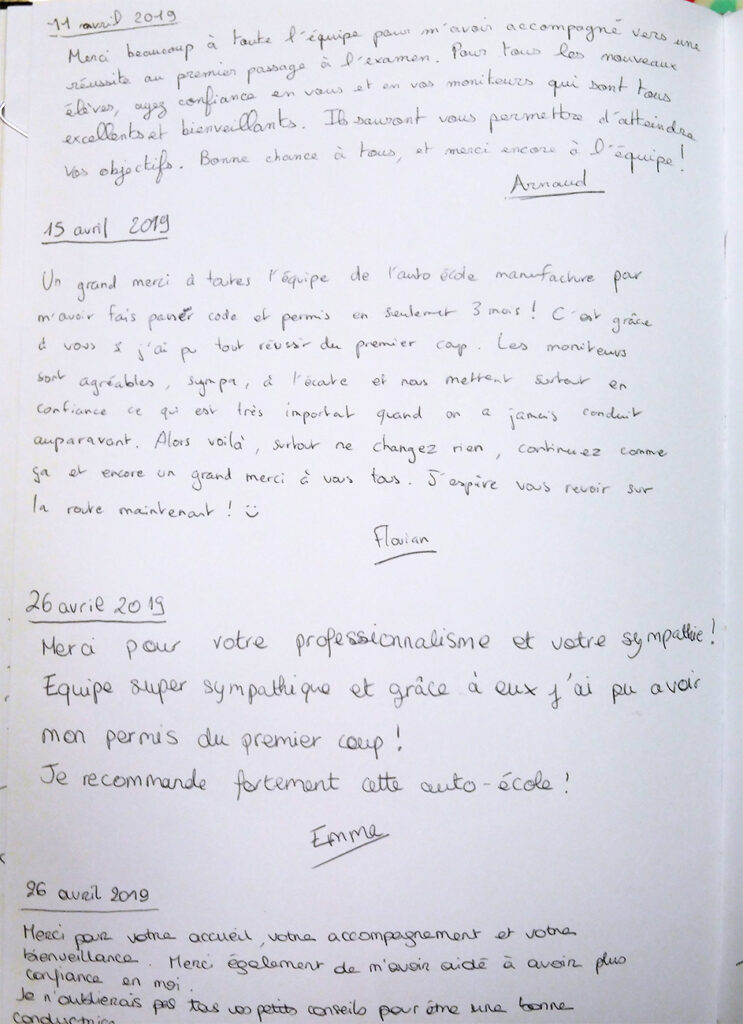 11 avril 2019
Merci beaucoup à toute l'équipe pour m'avoir accompagné vers une
réussite au premier passage à l'examen. Pour tous les nouveaux
élèves, ayez confiance en vous et en vos moniteurs qui sont tous
excellents et bienveillants. Ils sauront vous permettre d'atteindre
vos objectifs. Bonne chance à tous, et merci encore à l'équipe !
Arnaud
15 avril 2019
Un grand merci à toutes l'équipe de l'auto école manufacture pour
m'avoir fais passer code et permis en seulement 3 mois ! C'est grâce
à vous si j'ai pu tout réussir du premier coup. Les moniteurs
sont agréables, sympa, à l'écoute et nous mettent surtout en
confiance ce qui est très important quand on a jamais conduit
auparavant. Alors voilà, surtout ne changez rien, continuez comme
ça et encore un grand merci à vous tous. J'espère vous revoir sur
la route maintenant ! :)
Florian
26 avril 2019
Merci pour votre professionnalisme et votre sympathie !
Equipe super sympathique et grâce à eux j'ai pu avoir
mon permis du premier coup !
Je recommande fortement cette auto-école !
Emma
26 avril 2019
Merci pour votre accueil, votre accompagnement et votre
bienveillance. Merci également de m'avoir aidé à avoir plus
confiance en moi.
Je n'oublierais pas tous vos petits conseils pour être une bonne
conductrice